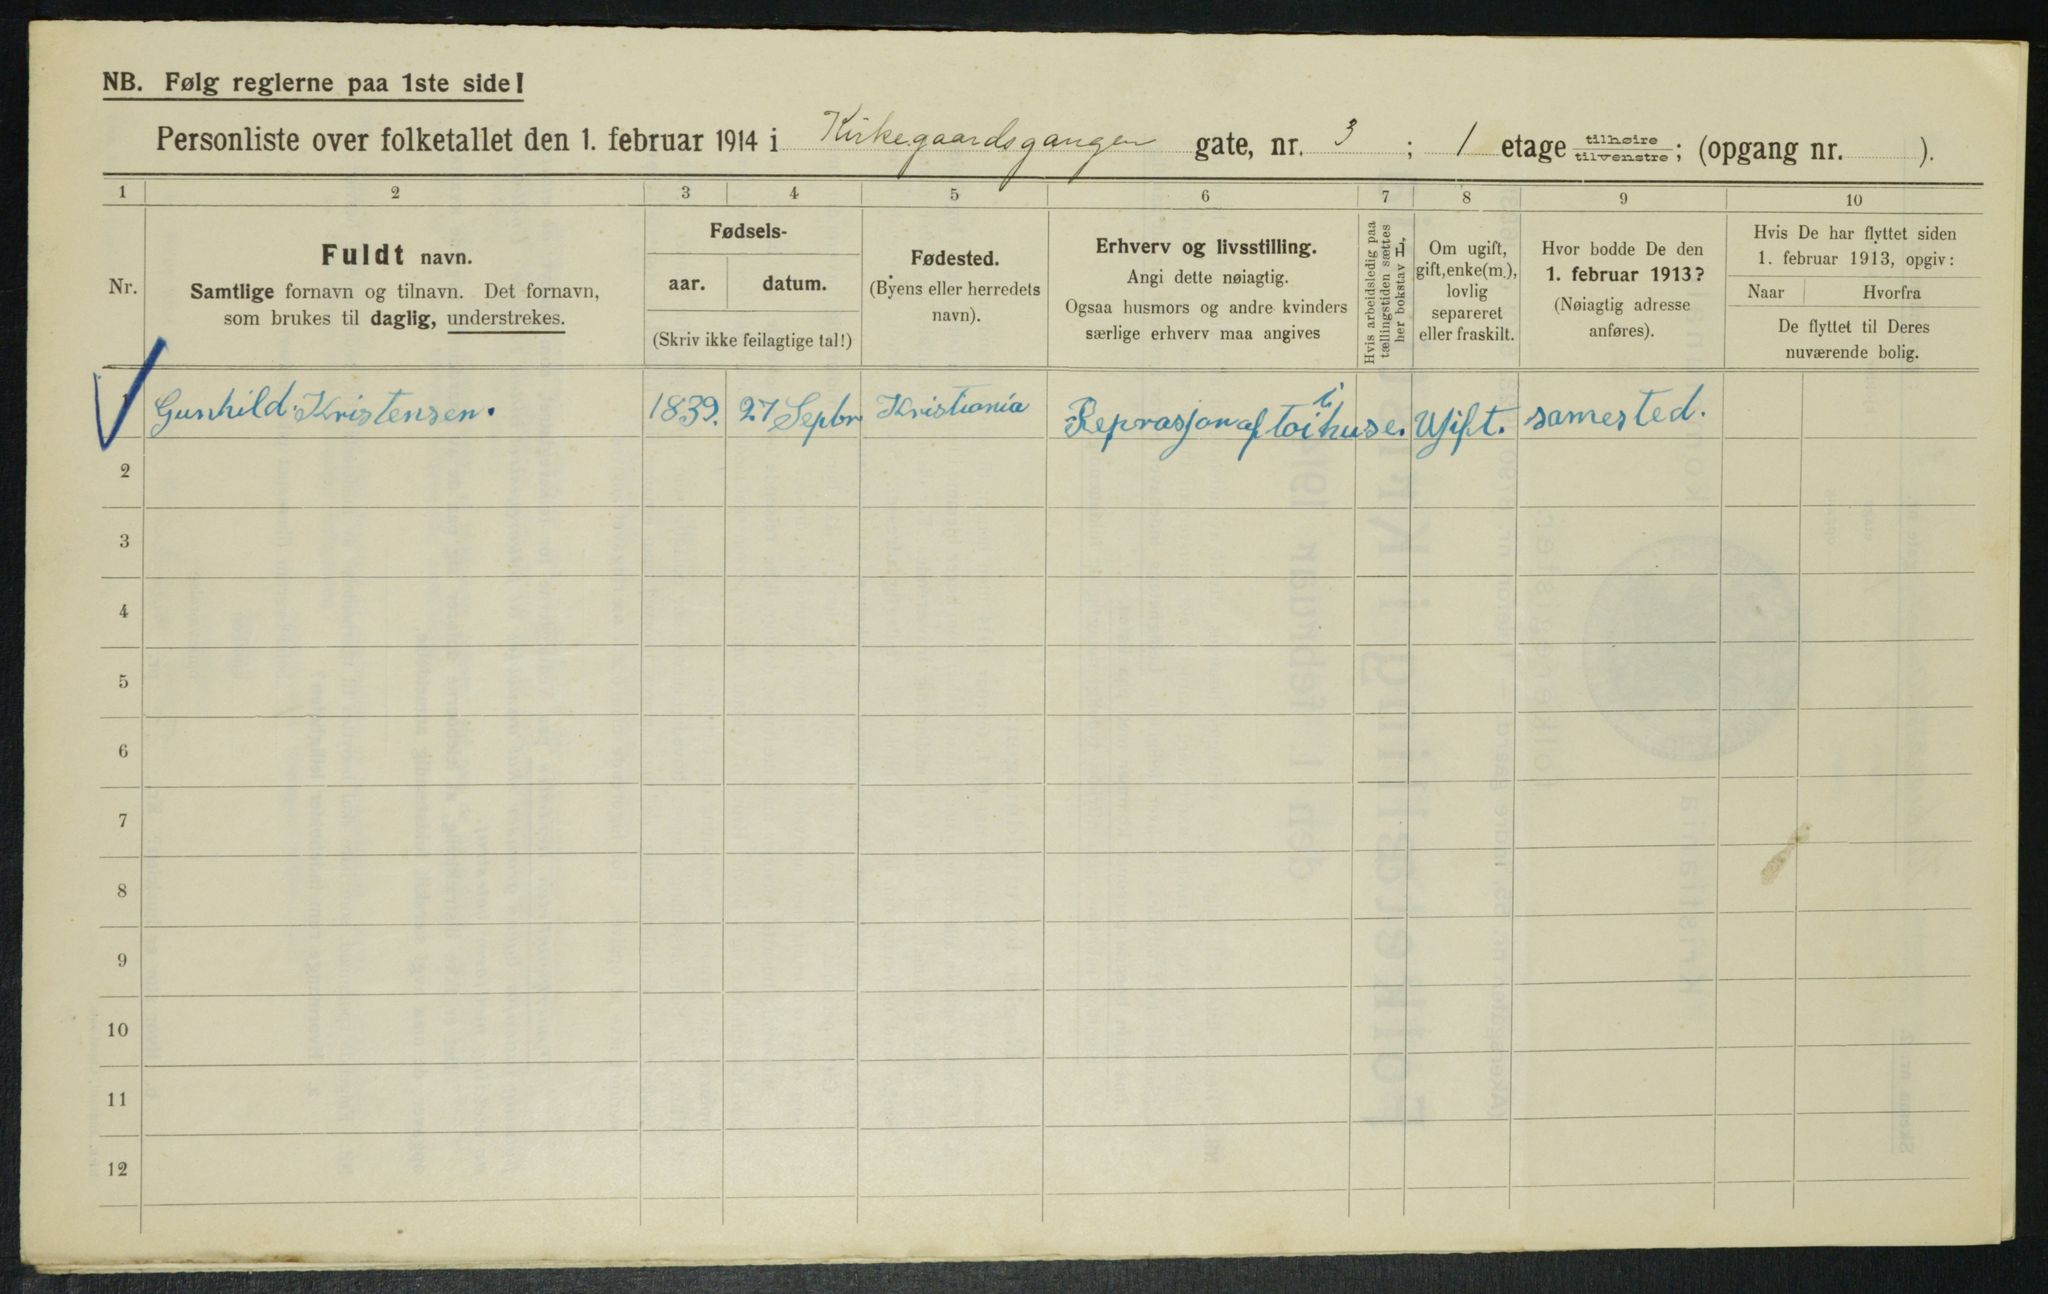 NB. Følg reglerne paa 1ste side!
Personliste over folketallet den 1. februar 1914 i Kirkegaardsgangen gate, nr. 3 ; 1 etage tilhøire tilvenstre; (opgang nr. ).
1 2 3 4 5 6 7 8 9 10
Nr.
Fuldt navn.
Samtlige fornavn og tilnavn. Det fornavn,
som brukes til daglig, understrekes.
Fødsels-
aar. datum.
(Skriv ikke feilagtige tal!)
Fødested.
(Byens eller herredets
navn).
Erhverv og livsstilling.
Angi dette nøiagtig.
Ogsaa husmors og andre kvinders
særlige erhverv maa angives
Hvis arbeidsledig paa
tællingstiden sættes
her bokstav L.
Om ugift,
gift, enke(m.),
lovlig
separeret
eller fraskilt.
Hvor bodde De den
1. februar 1913?
(Nøiagtig adresse
anføres).
Hvis De har flyttet siden
1. februar 1913, opgiv:
Naar Hvorfra
De flyttet til Deres
nuværende bolig.
Gunhild Kristensen. 1839. 27 Sepbr Kristiania Reprasjon af toi i huse. Ugift. samested.
2
3
4
5
6
7
8
9
10
11
12